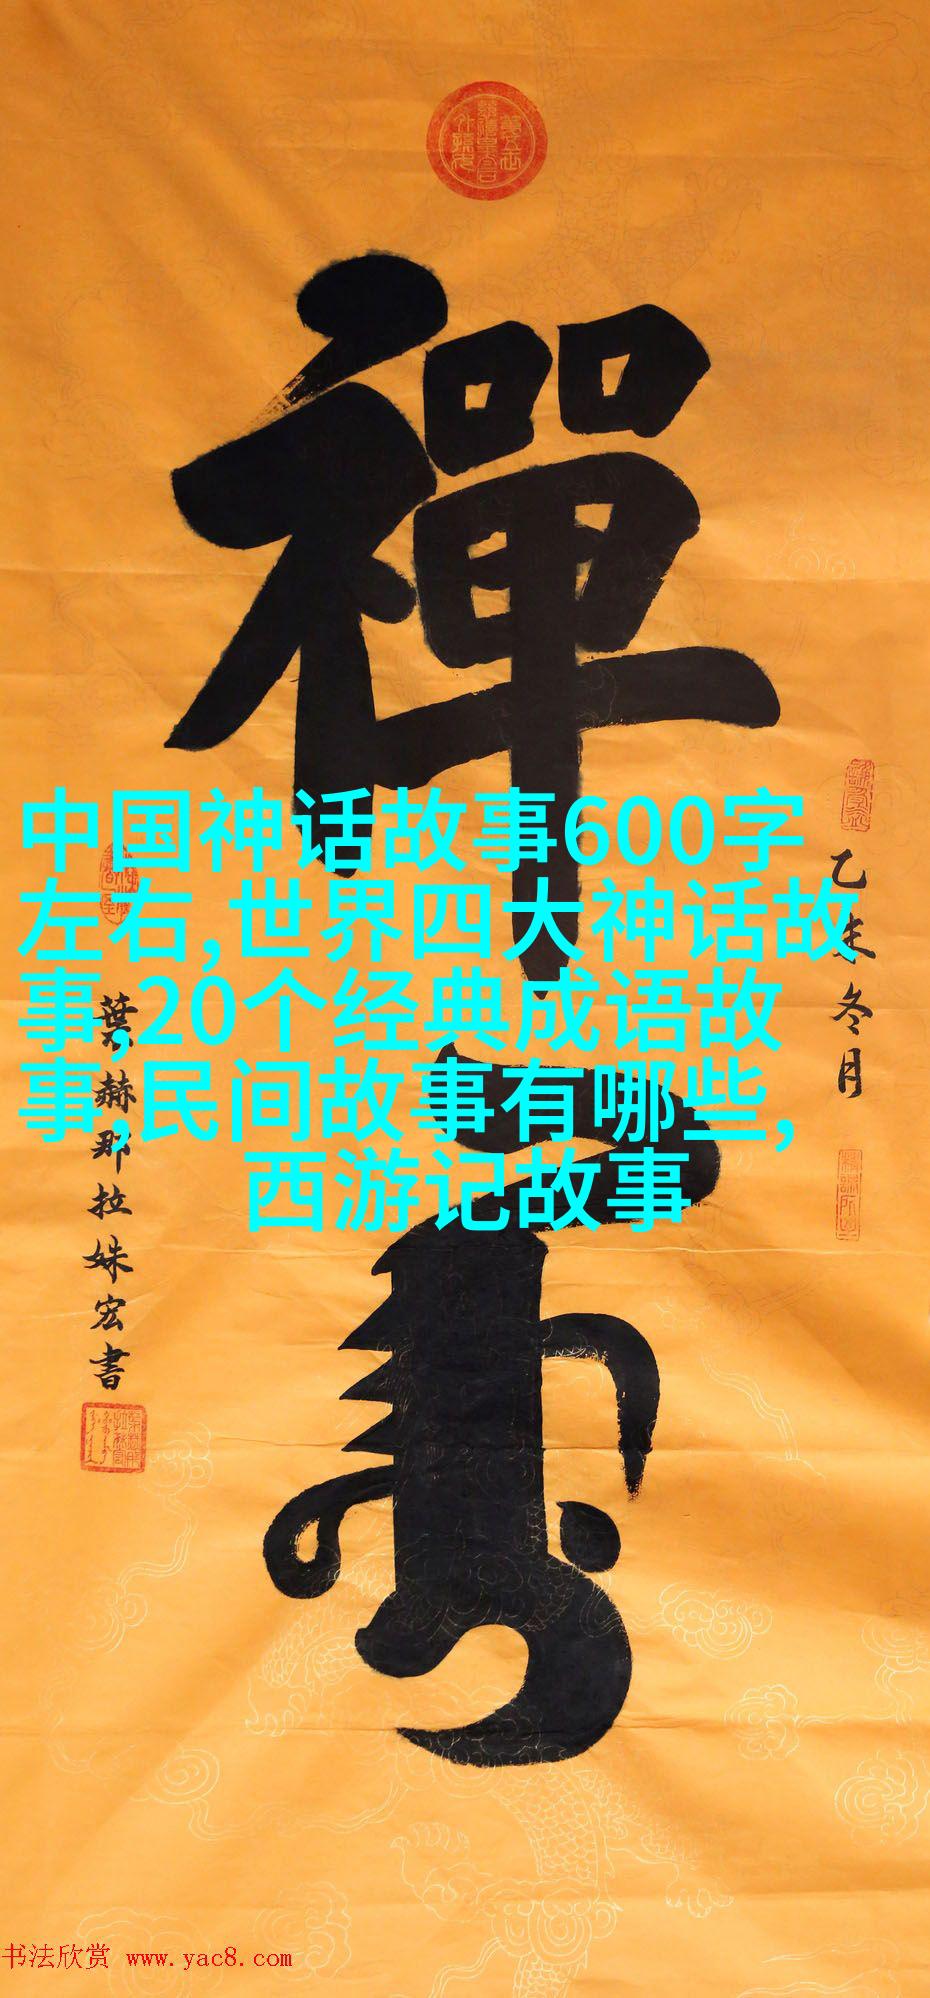 禪
中国神话故事600字
左右,世界四大神话故
事,20个经典成语故
事,民间故事有哪些,
西游记故事
乙未冬月
葉赫那拉姝宏書
书法欣赏 www.yac8.com